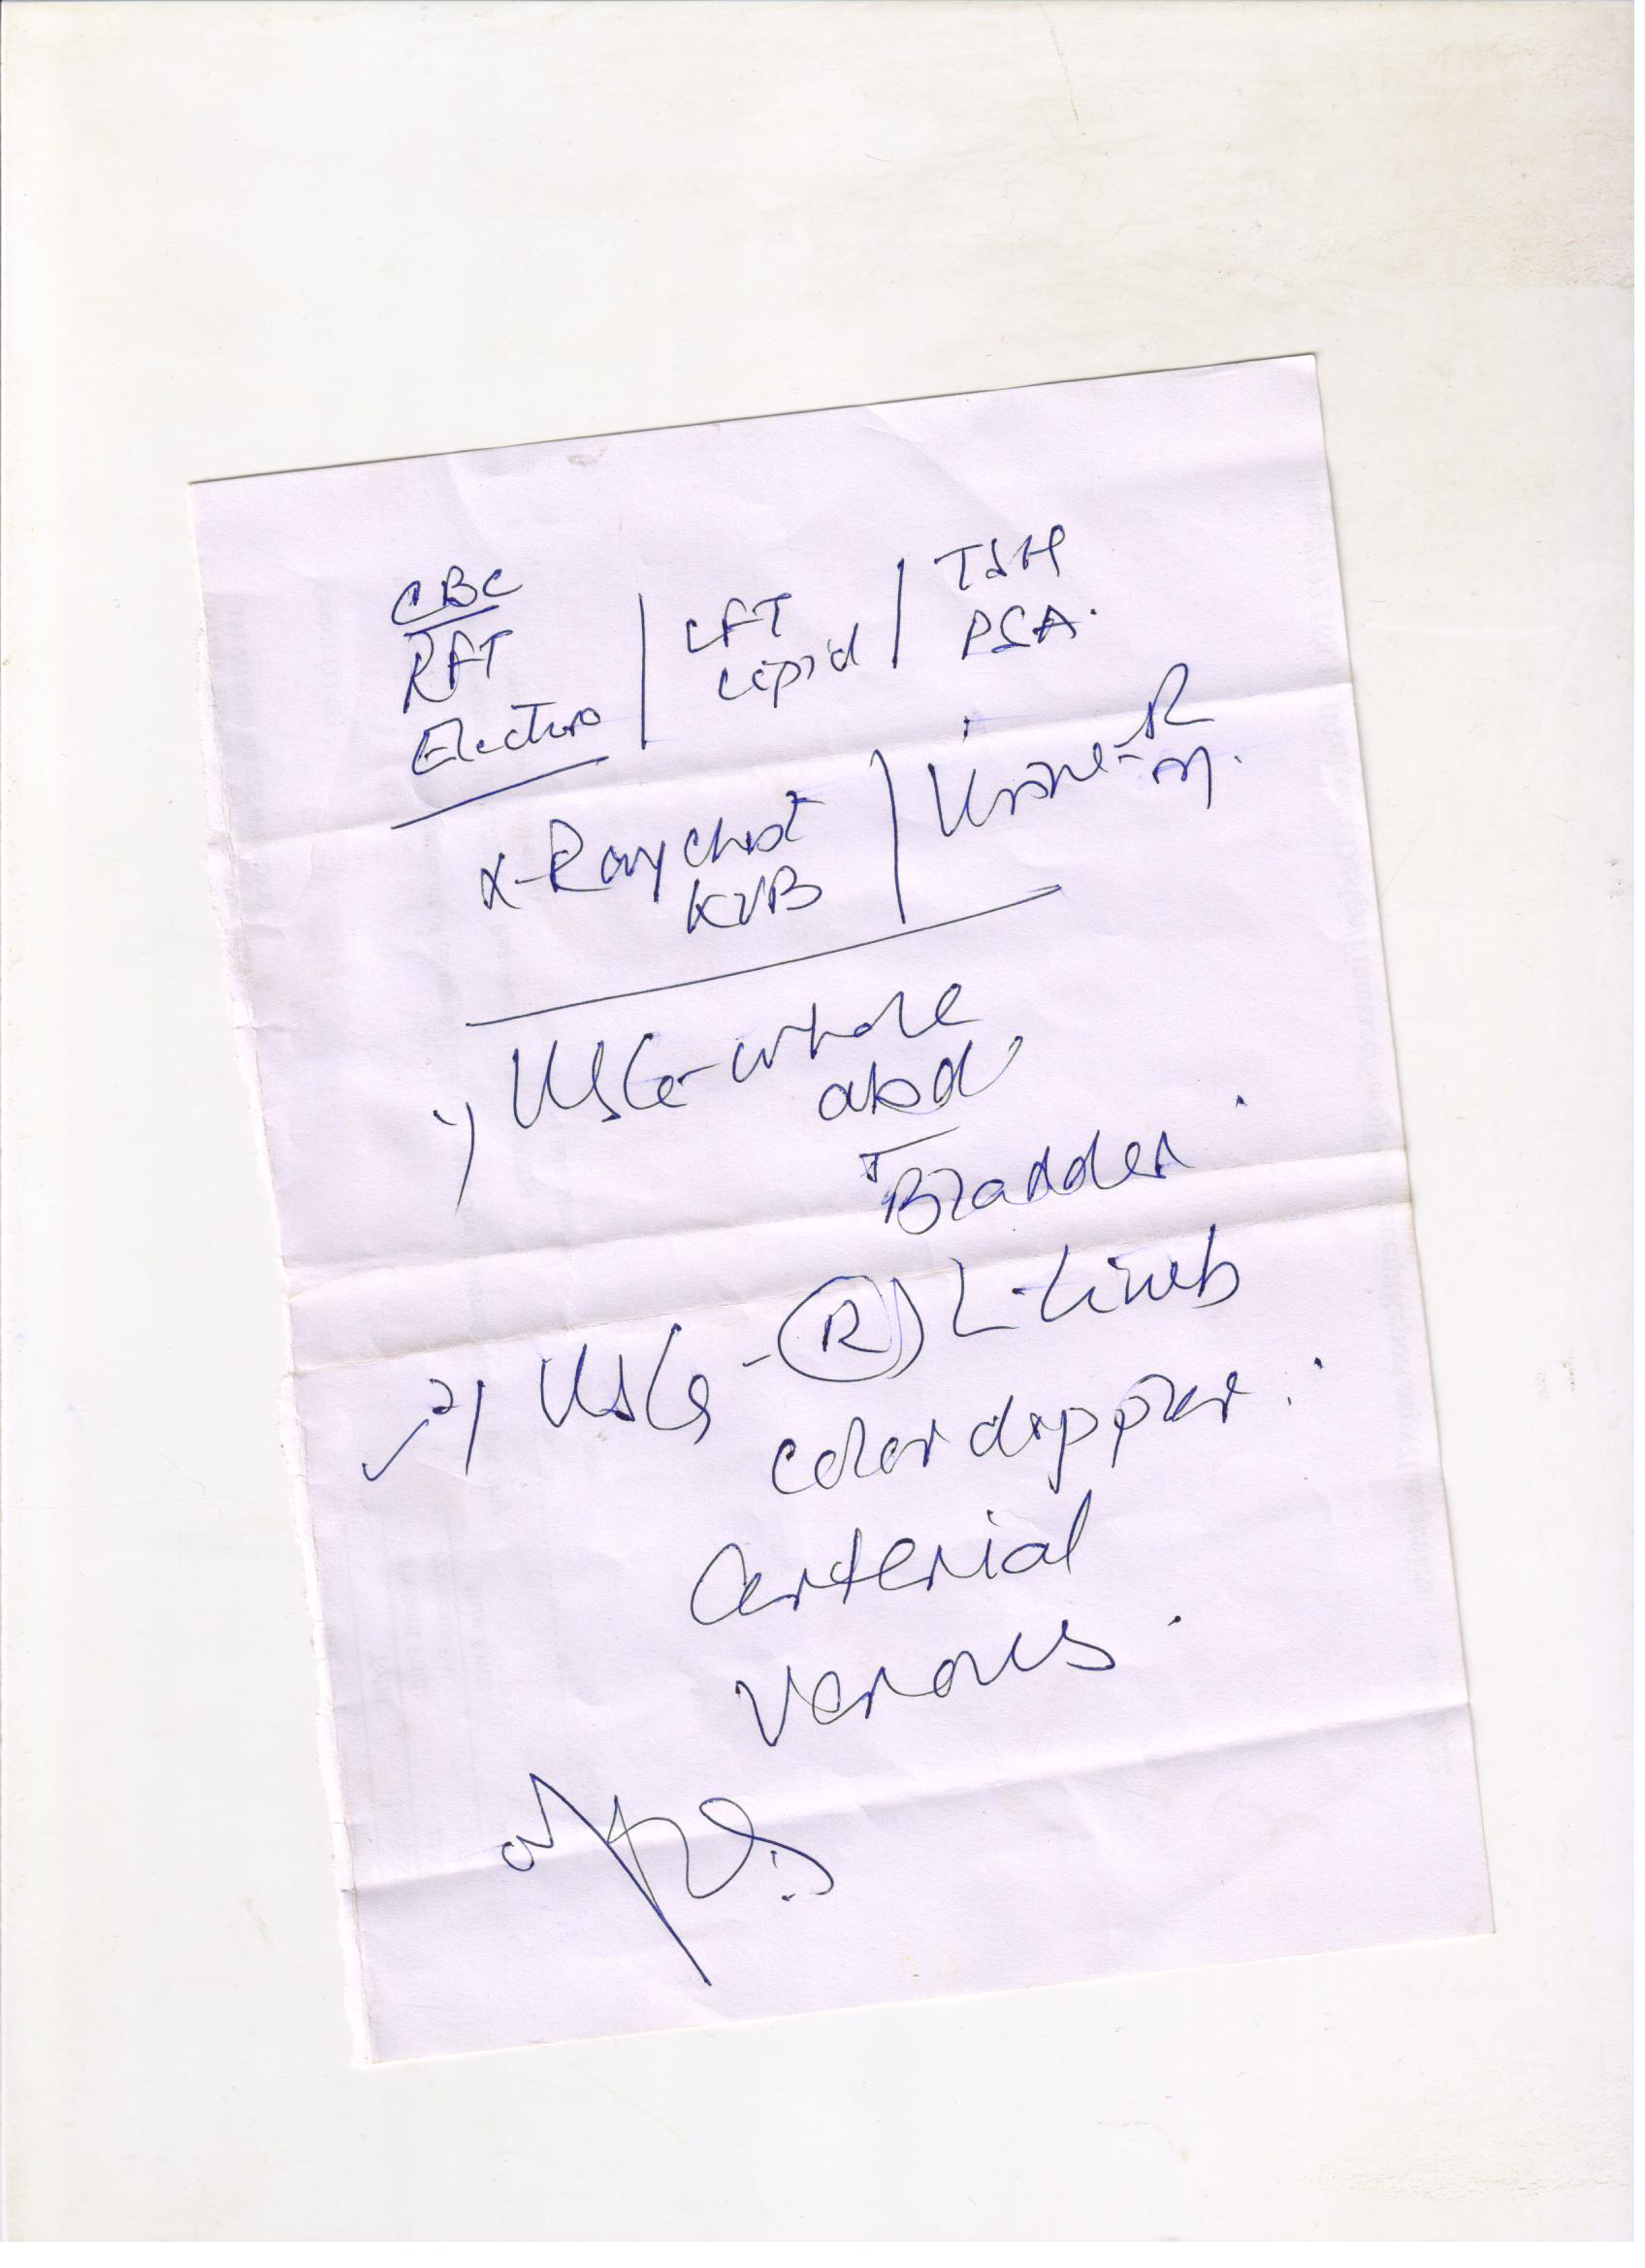 CBC
RFT
Electro
LFT
Lipid
TSH
PSA.
X-Ray Chest
KUB
Urine - R
M.
1) USG - whole
abd
Bladder.
2) USG - R L. Limb
Color doppler.
Arterial
Venous.